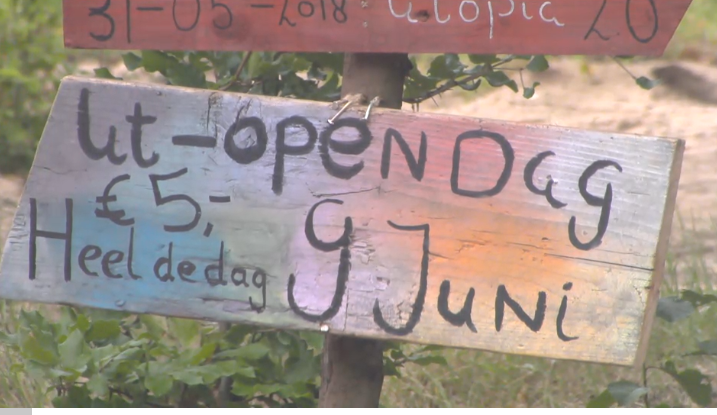 31-05-2018 utopia 2.0
Ut-open Dag
€5,-
Heel de dag 9 Juni